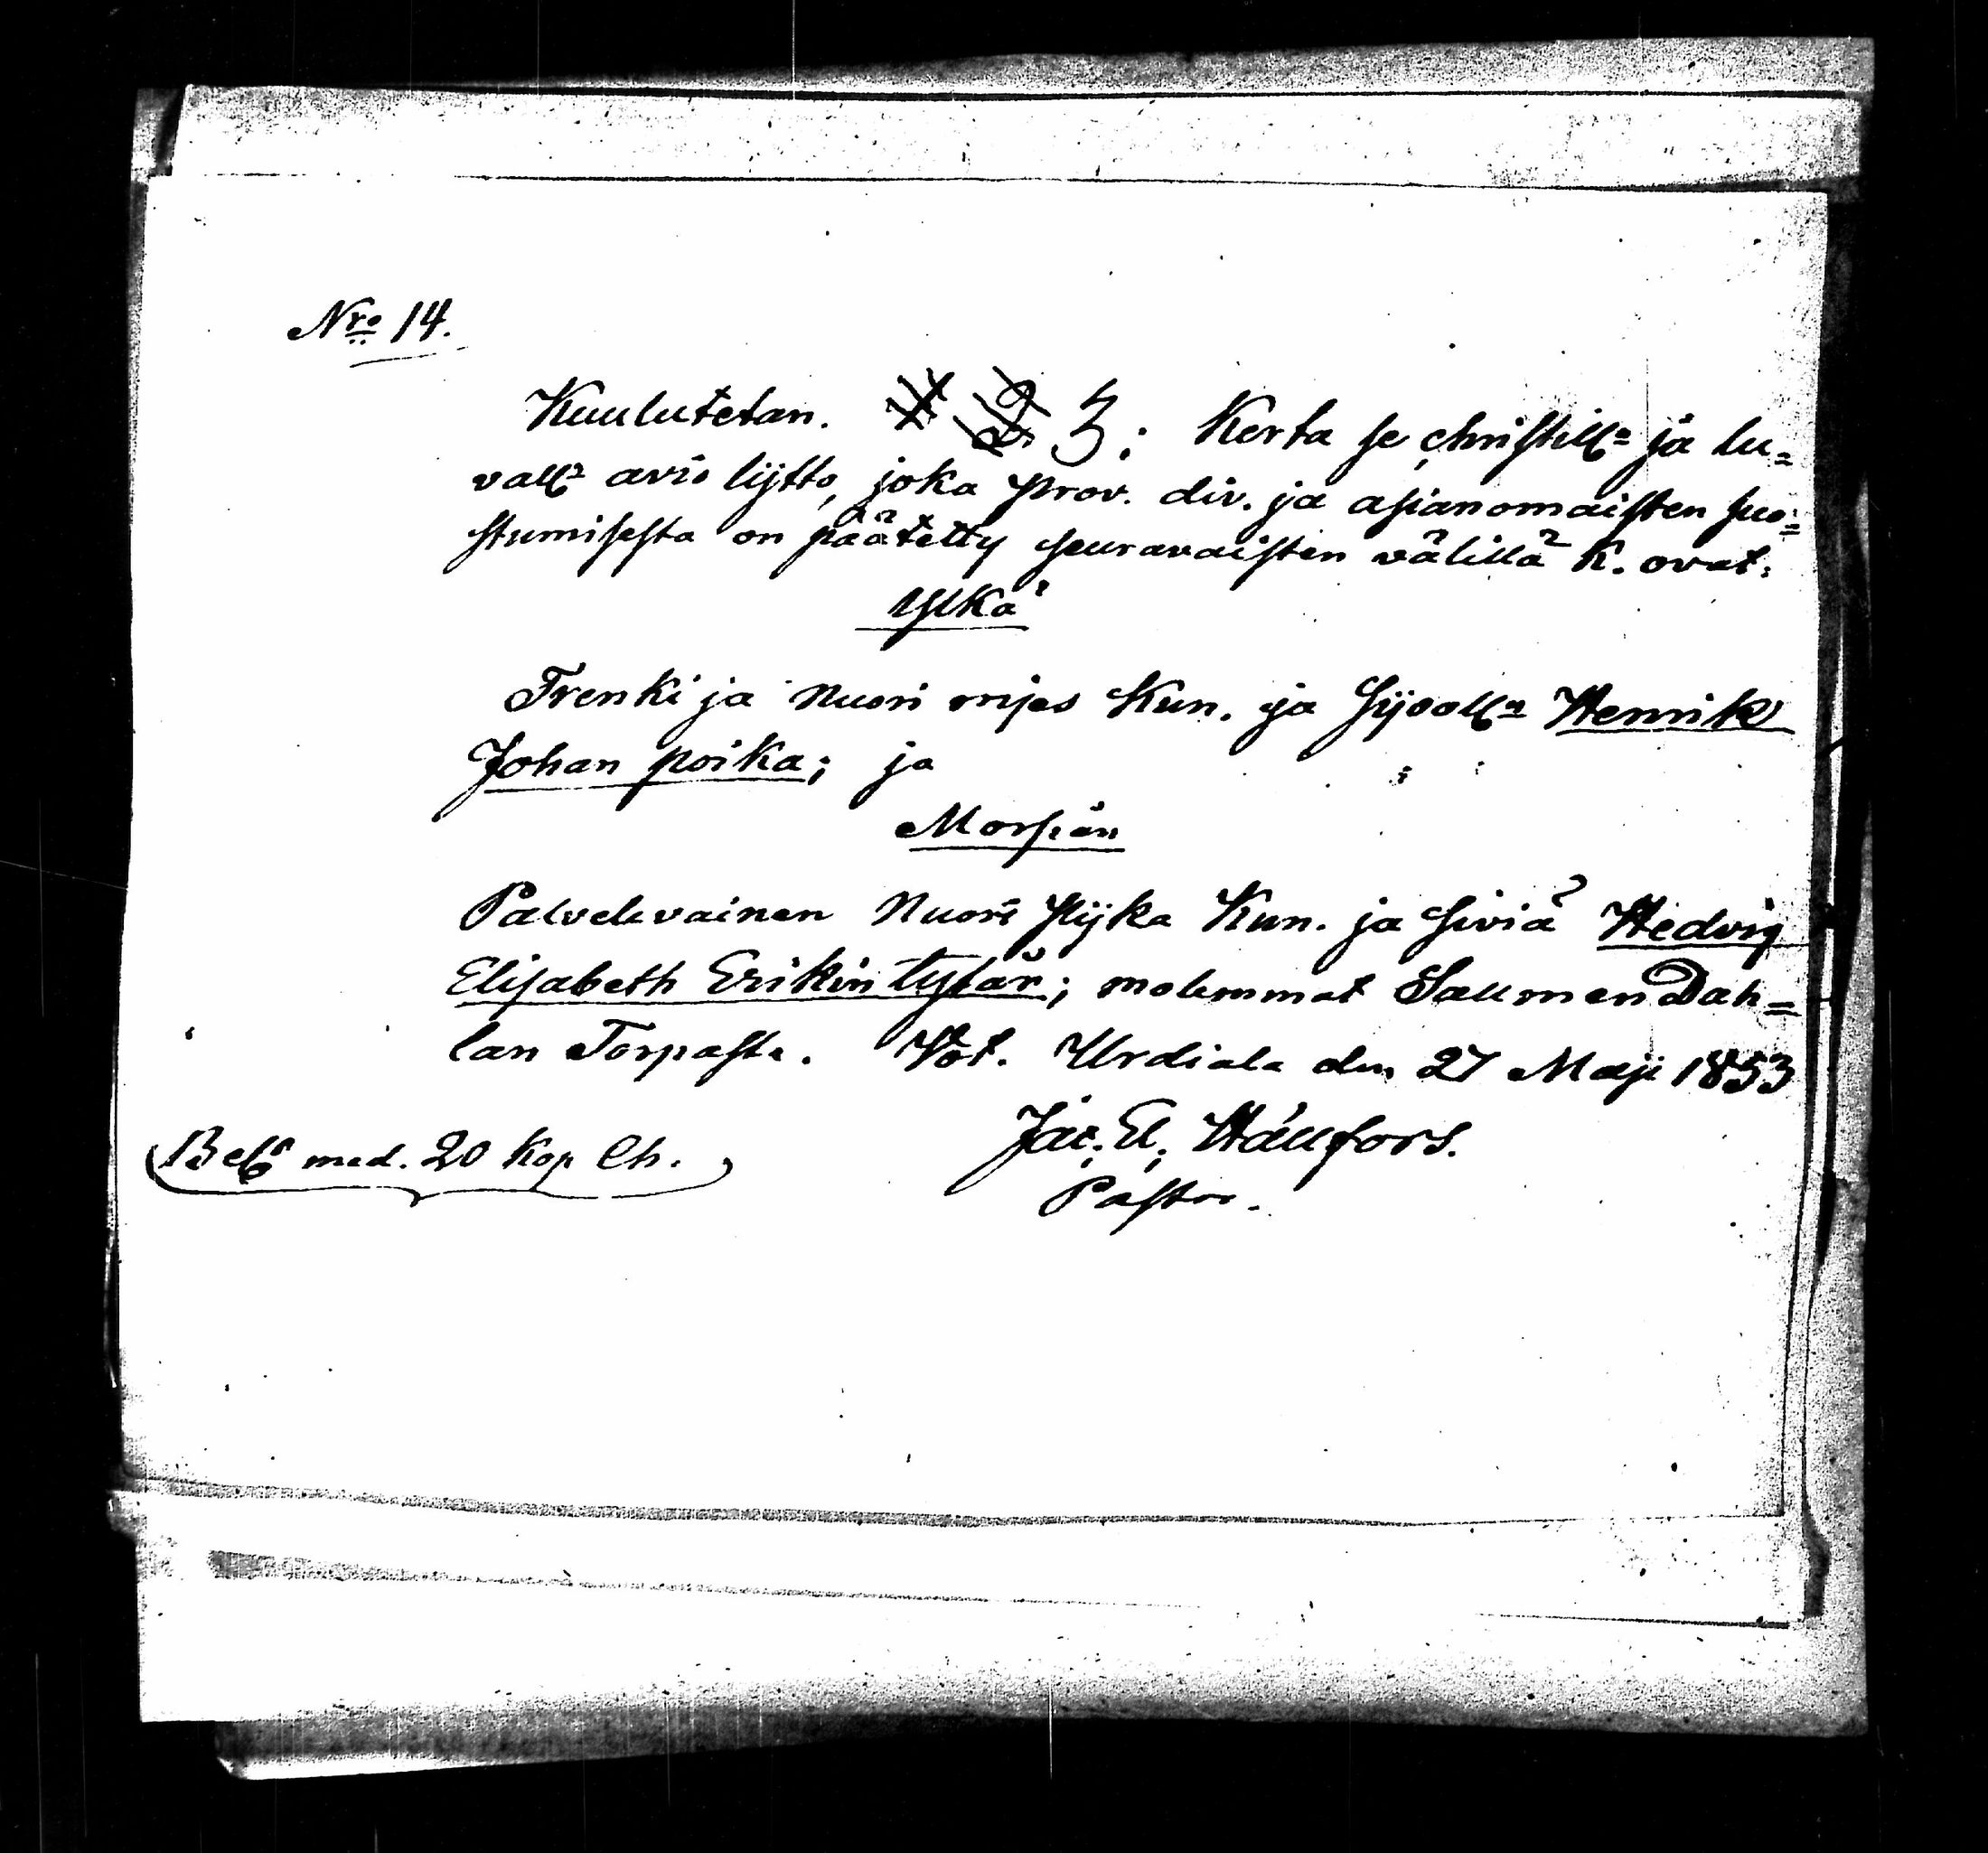 Nro 14.
Kuulutetan. 1 2 3: Kerta se christilla ja lu=
valla avio lijtto, joka prov. div. ja asianomaisten suo=
stumisesta on päätetty seuravaisten välillä K. ovat:
Ylkä
Trenki ja Nuori mjes Kun. ja Henrik
Johan poika; ja
Morsian
Palvelevainen Nuori pijka Kun. ja siviä Hedvig
Elisabeth Erikin tytär; molemmat Saumen Dah=
lan Torpasta. Vot. Urdiala den 27 Maji 1853
Jac. El. Hällfors.
Pastor.
(Bel. med. 20 Kop Ch.)